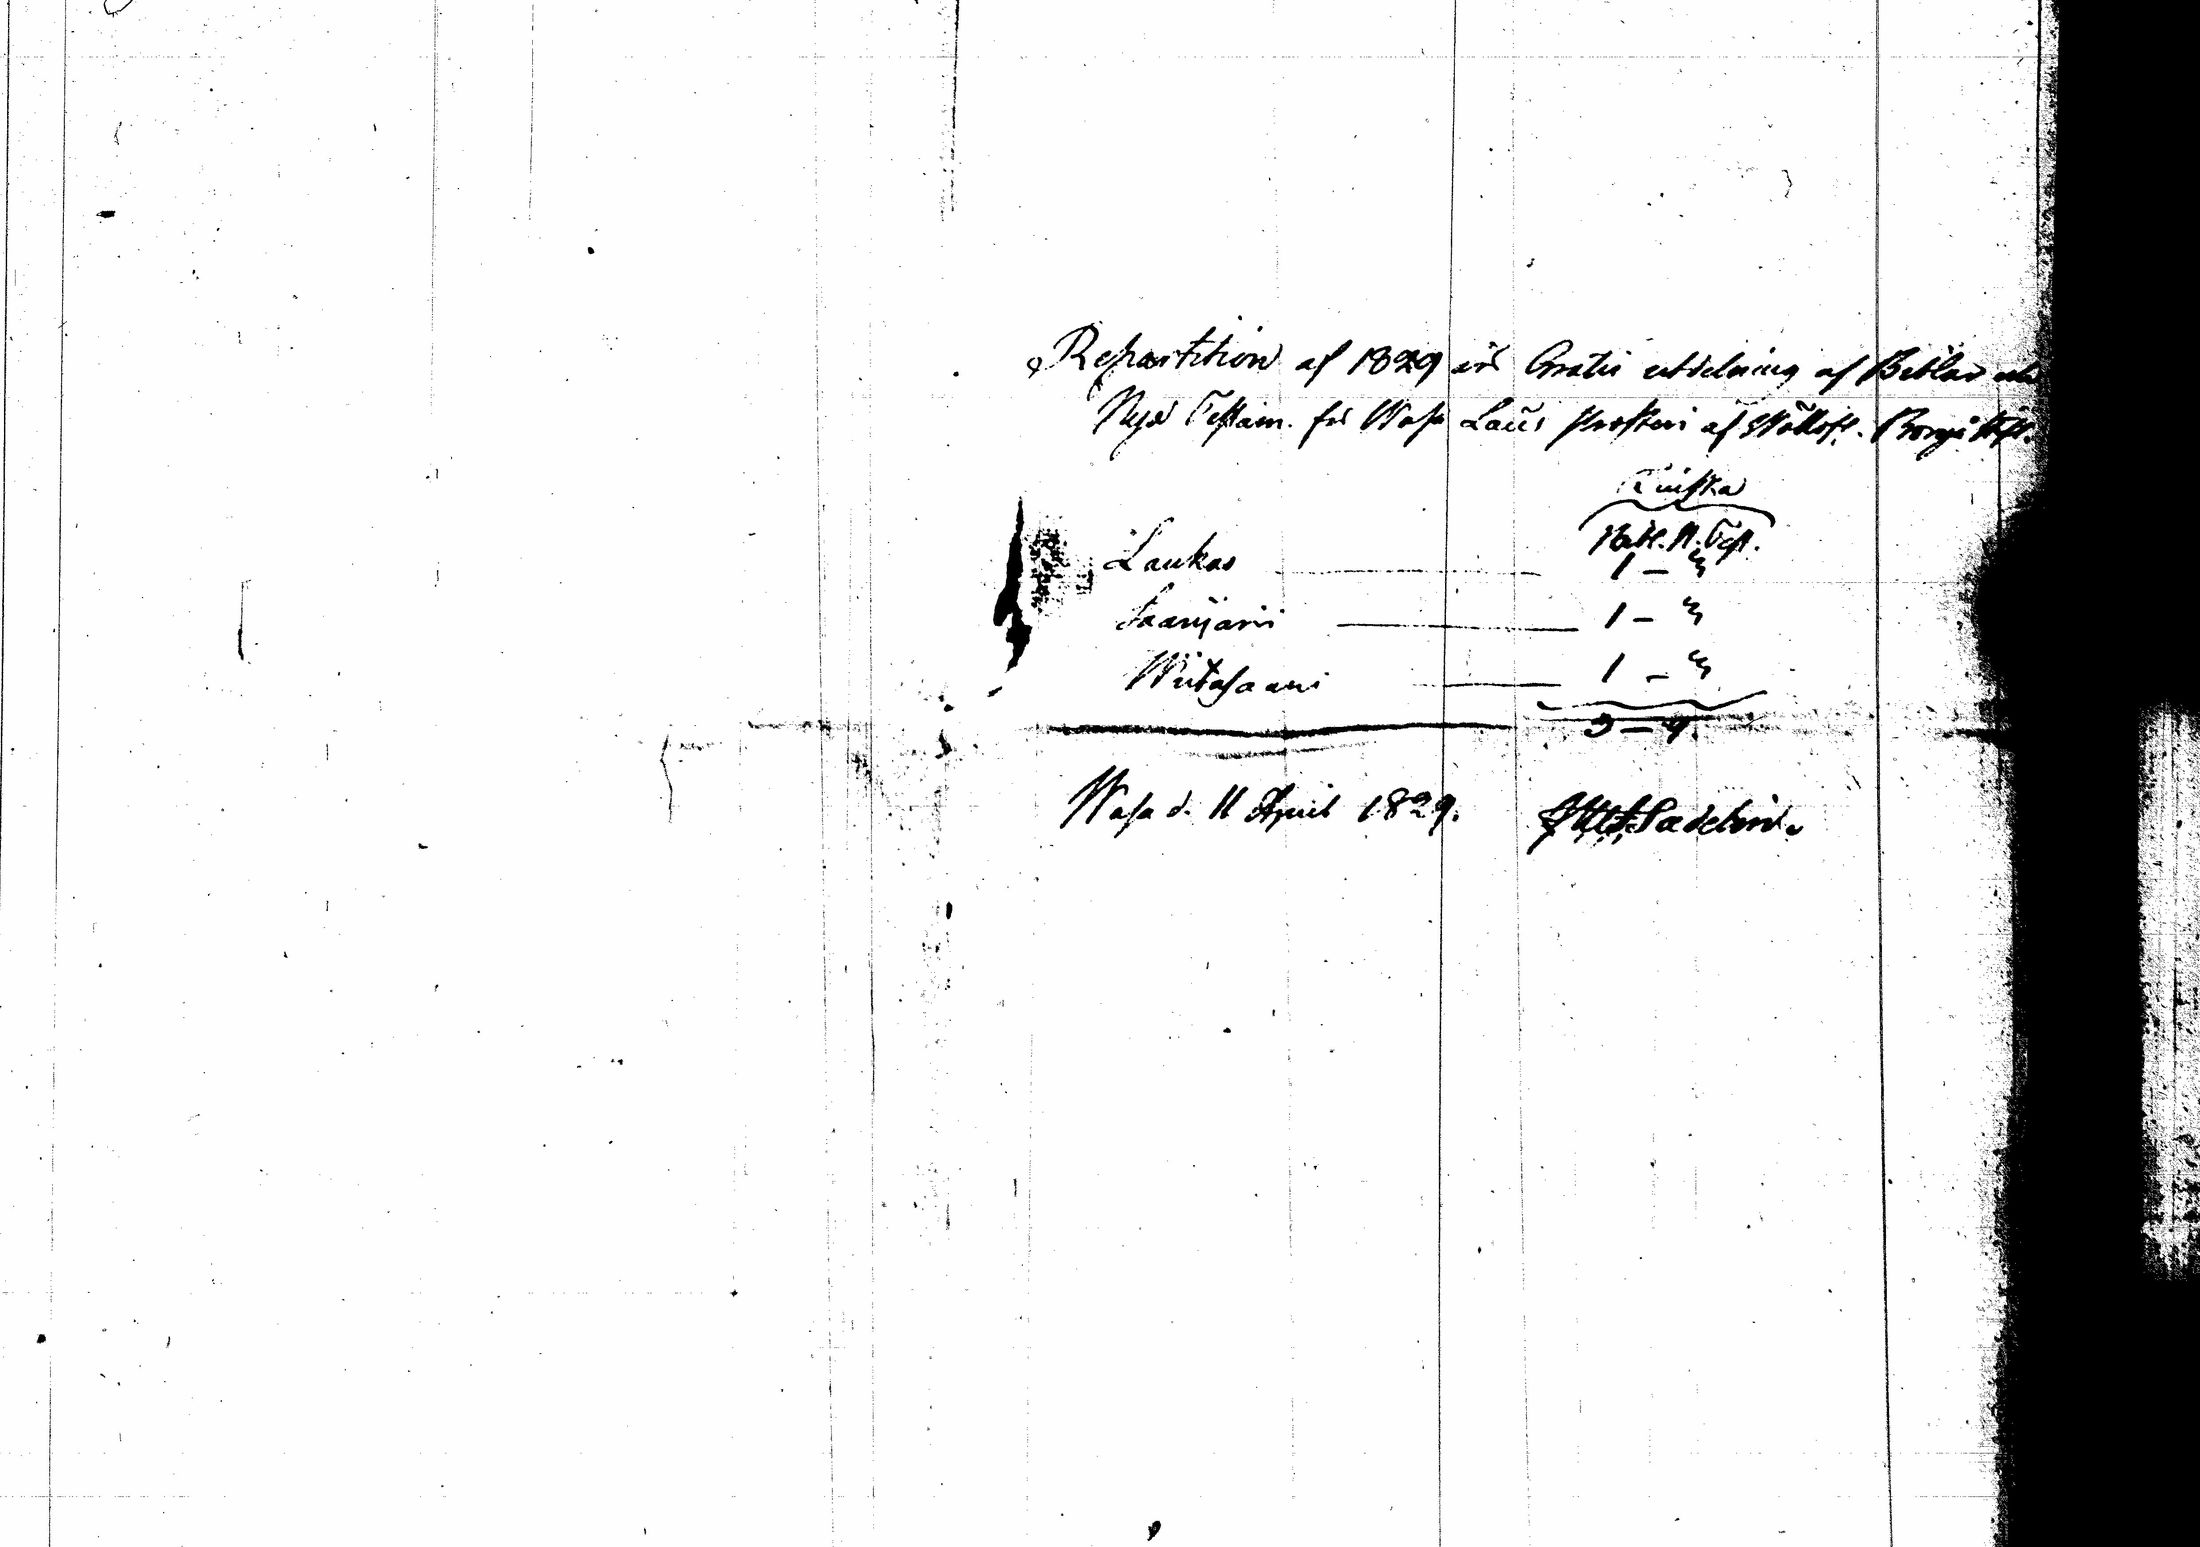 Repartition af 1829 års Gratis utdelning af Biblar och
Nya Testam. för Wasa Läns Prosteri af Borgå Stift.
Finska
Bibl. N. Test.
Laukas 1 — 3
Saarijärvi 1 — 3
Wiitasaari 1 — 3
3 — 9
Wasa d. 11 April 1829. Sadelin.